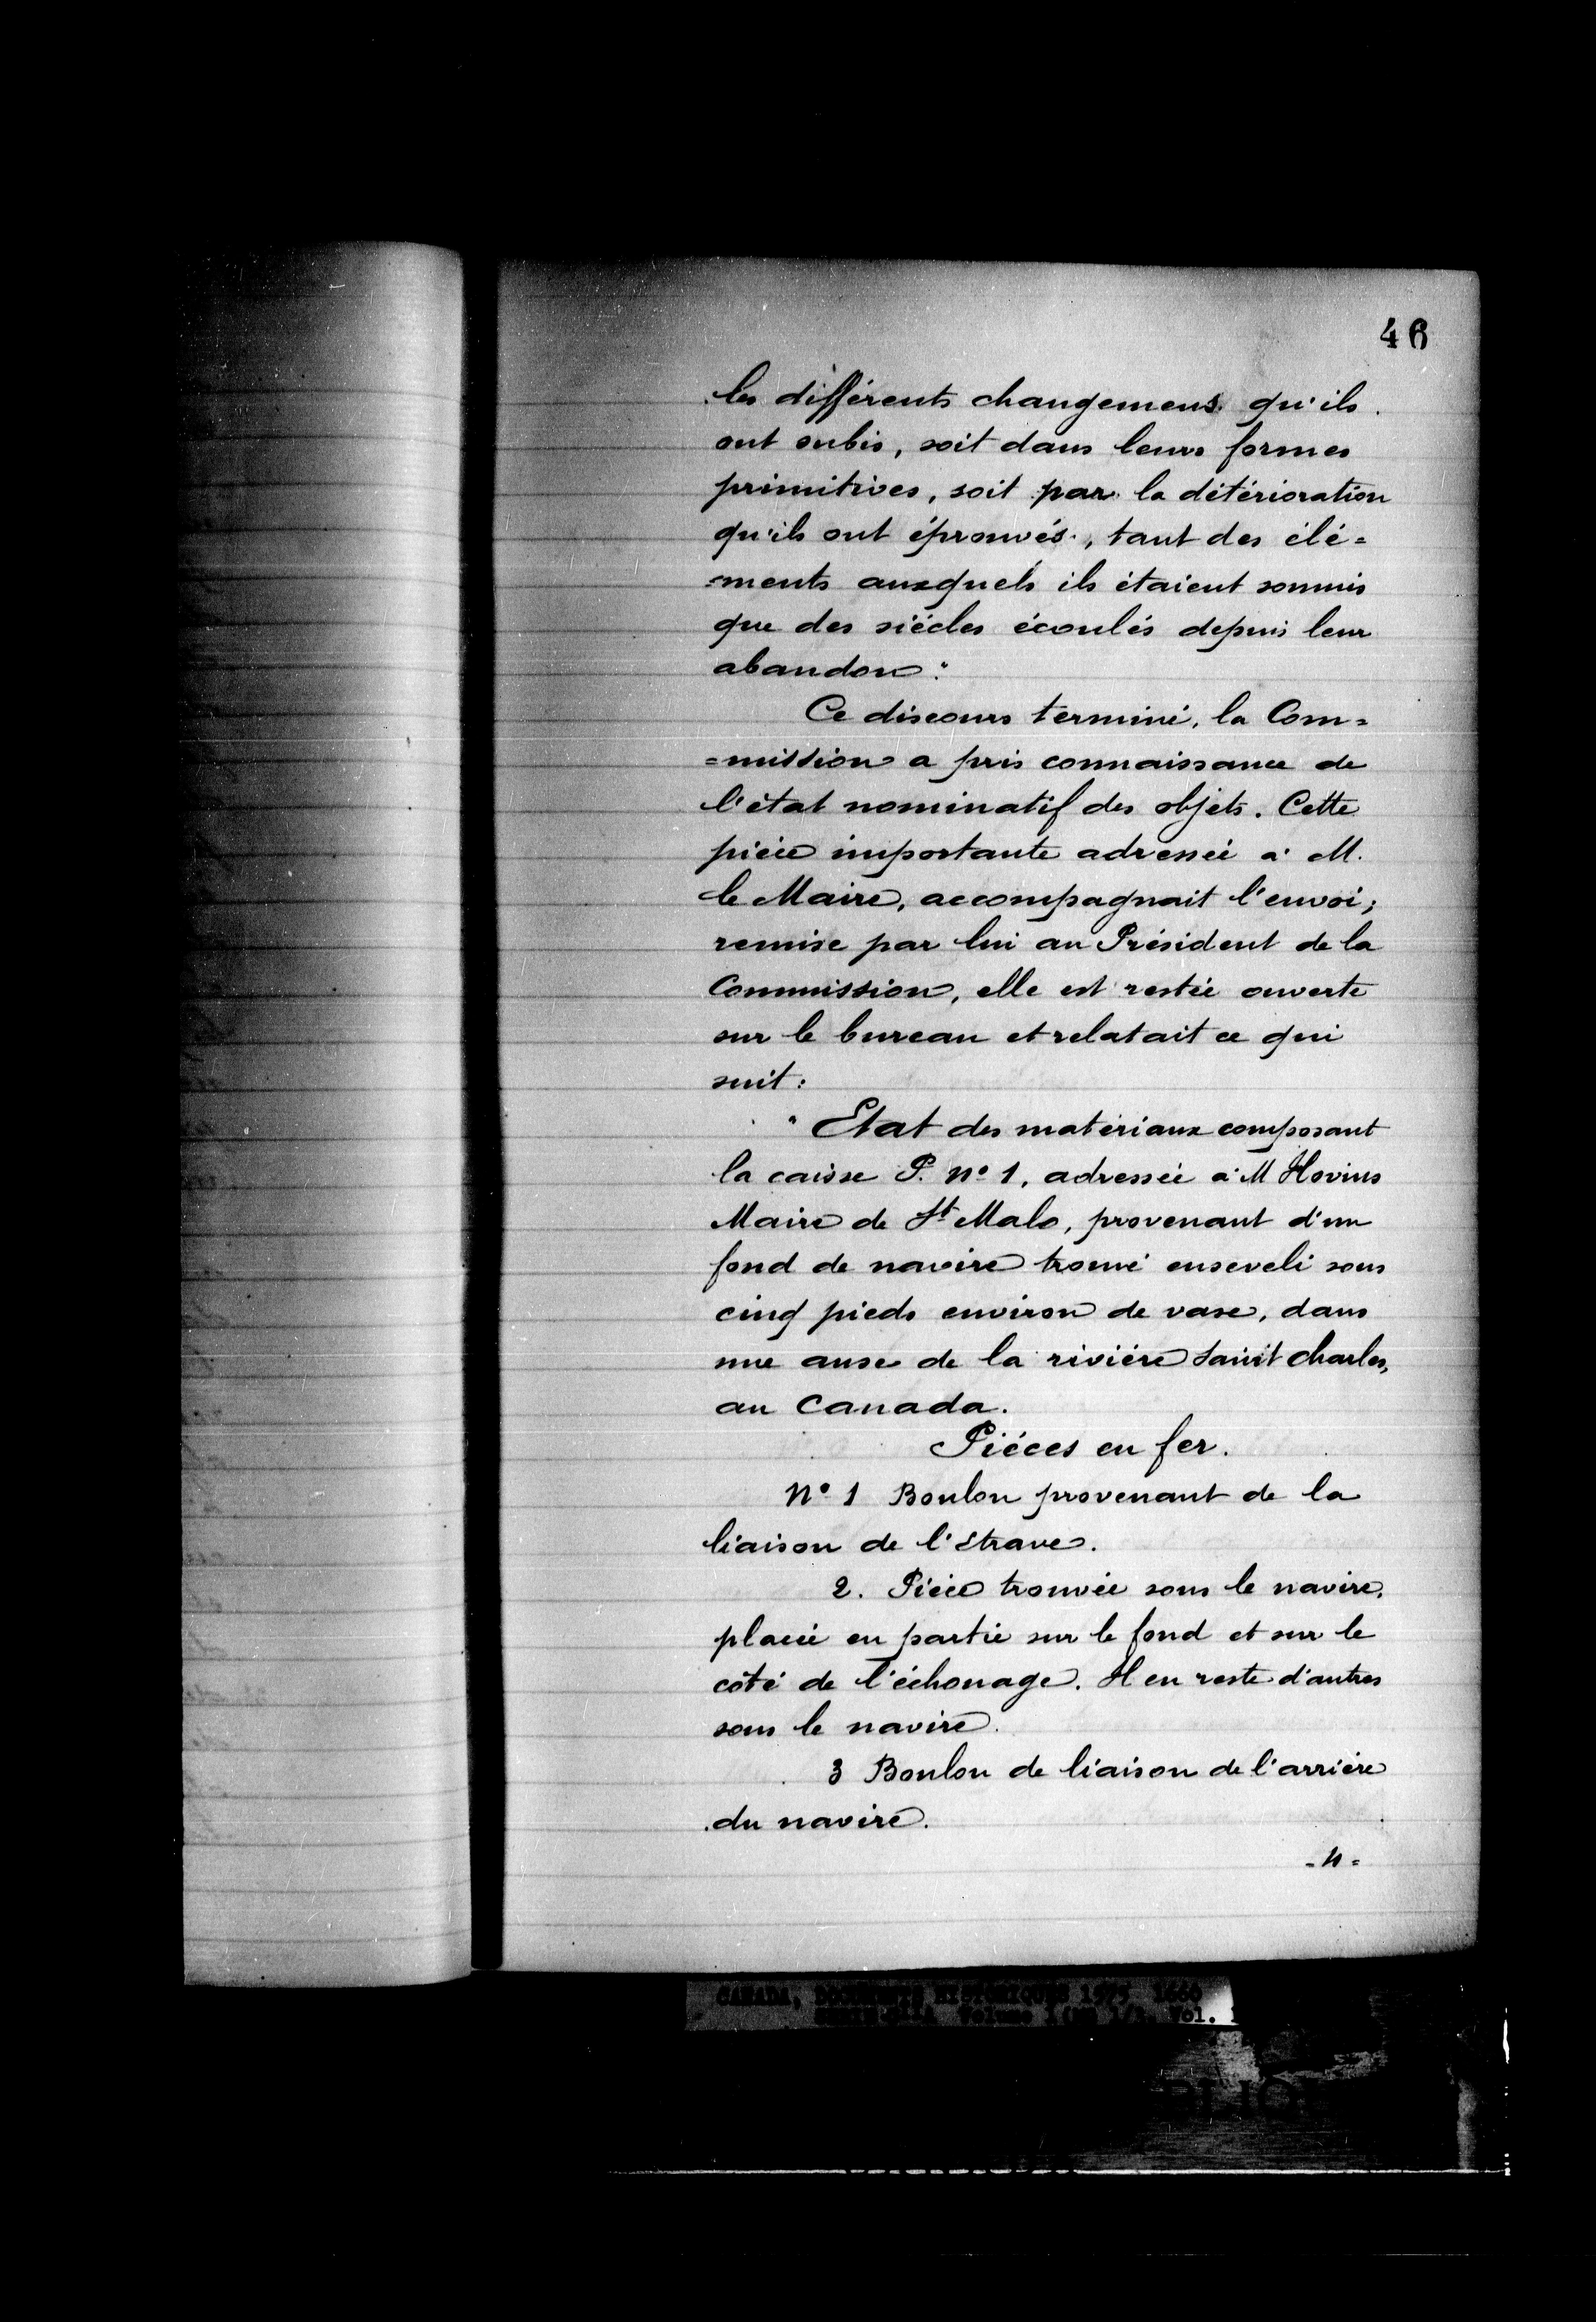 46
les différents changemens qu'ils
ont subis, soit dans leurs formes
primitives, soit par la détérioration
qu'ils ont éprouvés, tant des élé=
=ments auxquels ils étaient soumis
que des siècles écoulés depuis leur
abandon."
Ce discours terminé, la Com=
=mission a pris connaissance de
l'état nominatif des objets. Cette
pièce importante adressée à M.
le Maire, accompagnait l'envoi;
remise par lui au Président de la
Commission, elle est restée ouverte
sur le bureau et relatait ce qui
suit:
"Etat des matériaux composant
la caisse P. No 1, adressée à M Hovius
Maire de St Malo, provenant d'un
fond de navire trouvé enseveli sous
cinq pieds environ de vase, dans
une anse de la rivière Saint Charles,
au Canada.
Pièces en fer.
No 1 Boulon provenant de la
liaison de l'étrave.
2. Pièce trouvée sous le navire,
placée en partie sur le fond et sur le
côté de l'échouage. Il en reste d'autres
sous le navire.
3 Boulon de liaison de l'arrière
du navire.
-4=
CANADA, DOCUMENTS HISTORIQUES 1660
Volume Vol.